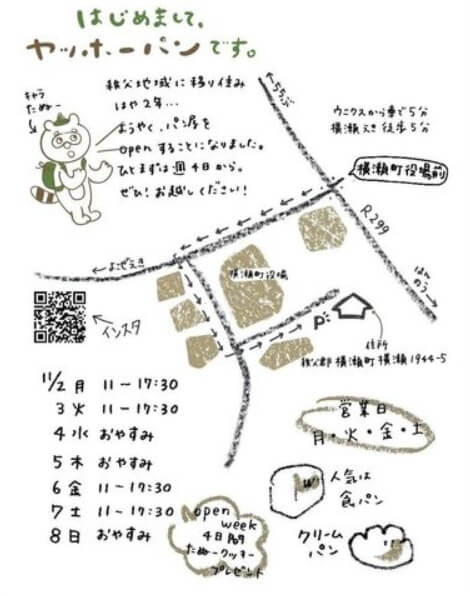 はじめまして。
ヤッホーパンです。
キャラ
たぬー
秩父地域に移り住み
はや2年…
ようやく、パン屋を
openすることになりました。
ひとまずは週4日から。
ぜひ！お越しください！
ちちぶ
ウニクスから車で5分
横瀬えき徒歩5分
横瀬町役場前
R299
はんのう
よこぜえき
横瀬町役場
P
住所
秩父郡横瀬町横瀬1944-5
インスタ
11/2 月 11-17:30
3 火 11-17:30
4 水 おやすみ
5 木 おやすみ
6 金 11-17:30
7 土 11-17:30
8 日 おやすみ
営業日
月・火・金・土
人気は
食パン
クリーム
パン
open
week
4日間
たぬークッキー
プレゼント